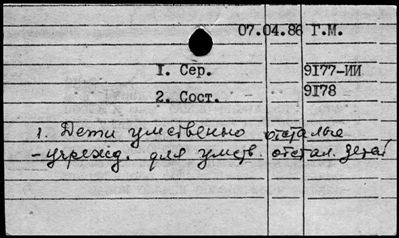 07.04.86 Г.М.
1. Сер. 9177-ИИ
2. Сост. 9178
1. Дети умственно отсталые
- учрежд. для умств. отстал. детей